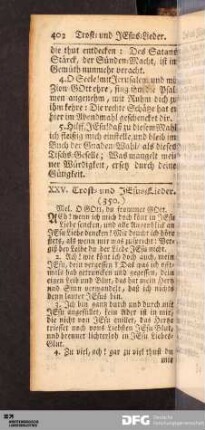 402 Trost- und JEsus-Lieder.
die thut entdecken: Des Satans
Stärck, der Sünden-Macht, ist im
Gemüth nunmehr veracht.
4. O Seele! mit Jerusalem, und mit
Zion GOtt ehre, sing ihm die Psal-
men angenehm, mit Ruhm dich zu
ihm kehre: Die rechte Schätze hat er
hier im Abendmahl geschencket dir.
5. Hilf, JEsu! daß zu diesem Mahl
ich fleißig mich einstelle, und bleib im
Buch der Gnaden-Wahl, als dieses
Tisches-Geselle; Was mangelt meiner
Würdigkeit, ersetz durch deine
Gütigkeit.
XXV. Trost- und JEsus-Lieder.
(350.)
Mel. O GOtt, du frommer GOtt.
ACh! wenn ich mich doch könt in JEsu
Liebe sencken, und alle
JEsu Liebe dencken! Mir deucht ich höre
stets, als wenn mir was
daß Liebe du der Liebe JEsu nicht.
2. Ach! wie könt ich doch auch, mein
JEsu, dein vergessen?
hab getruncken und gegessen, dein
eigen Leib und Blut, das hat mein Hertz
und Sinn verwandelt, daß ich nichts
denn lauter JEsus bin.
3. Ich bin gantz durch und durch mit
JEsu angefüllet, kein Ader ist in mir,
die nicht von JEsu quillet, das Hertze
trieffet noch vons Liebsten JEsu Blut,
und brennet lichterloh in JEsu Liebes-
Glut.
4. Zu viel, ach! gar zu viel thust du
mir
DFG
Deutsche
Forschungsgemeinschaft